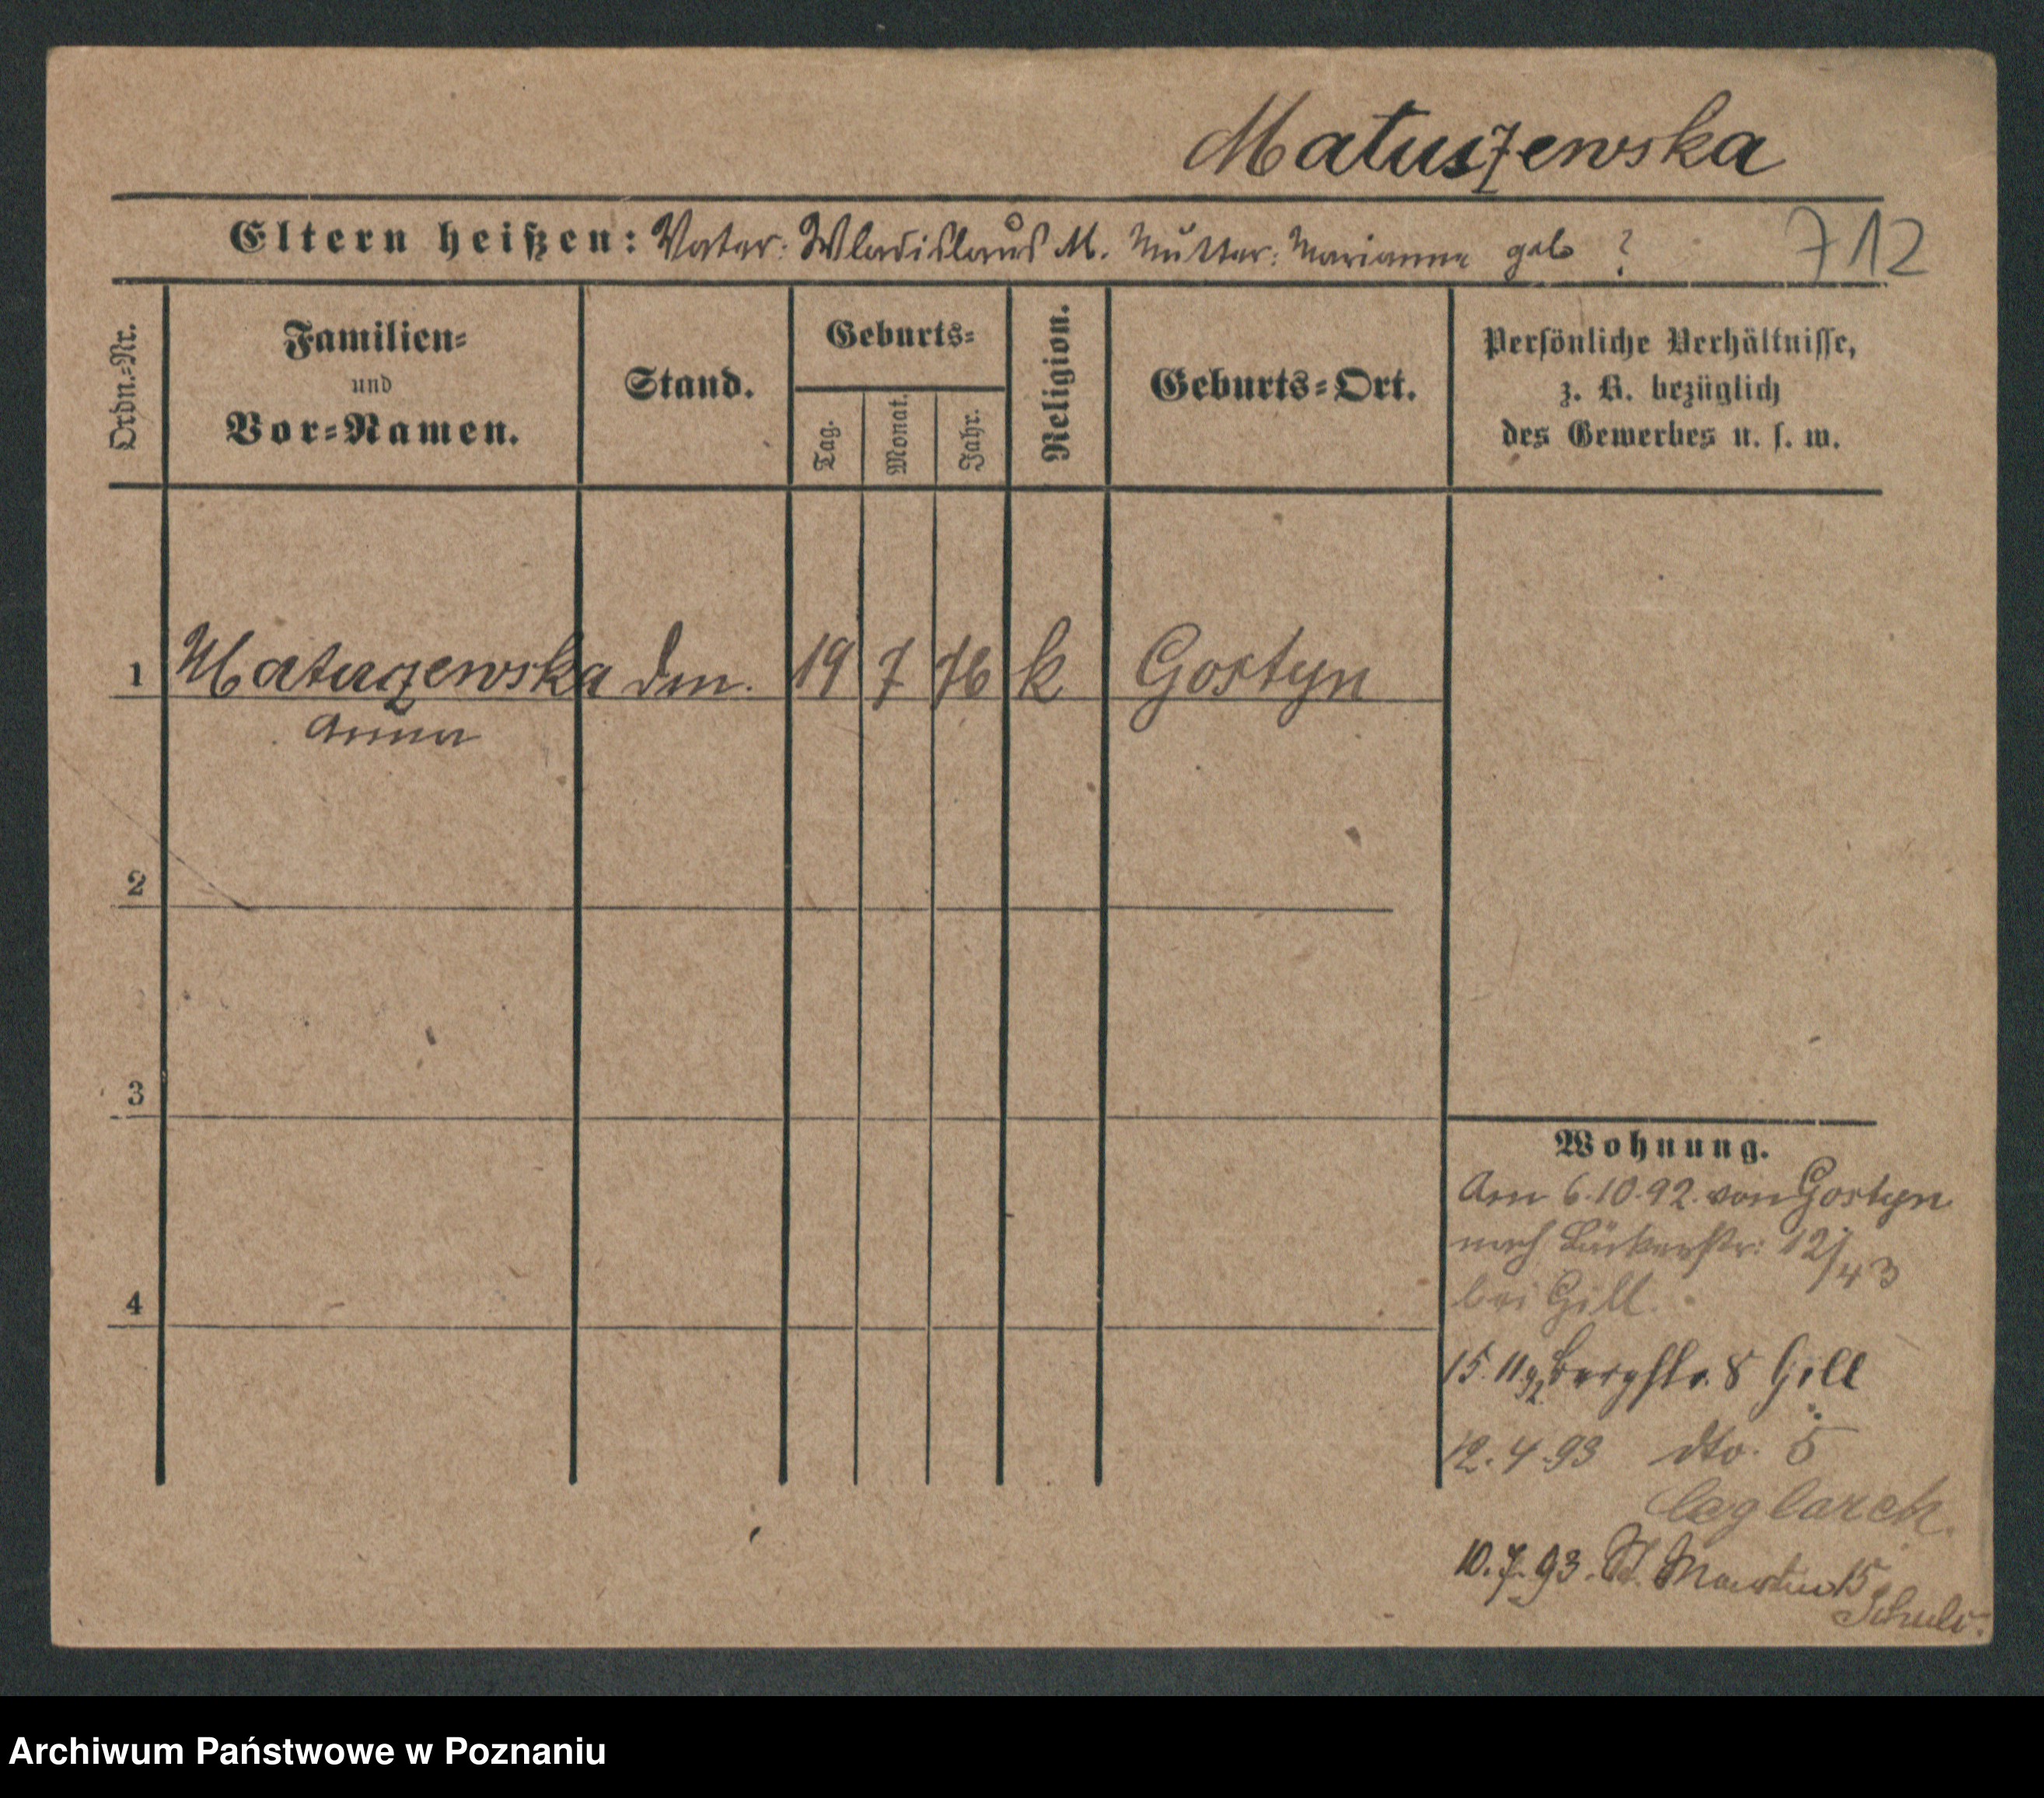 Matuszewska
Eltern heißen: Vater: Wladislaus M. Mutter: Marianna geb ?
712
Ordn.=Nr.
Familien=
und
Vor=Namen.
Stand.
Geburts=
Tag.
Monat.
Jahr.
Religion.
Geburts=Ort.
Persönliche Verhältnisse,
z. B. bezüglich
des Gewerbes u. s. w.
1 Matuszewska dm. 19 7 76 k Gostyn
Anna
2
3
4
Wohnung.
Am 6.10.92. von Gostyn
nach Bäckerstr: 12/43
bei Gill.
15.11 92 Bergstr. 8 Gill
12.4.93 dto. 5
Ceglarek
10.7.93. St. Martin 15
Schulz.
Archiwum Państwowe w Poznaniu